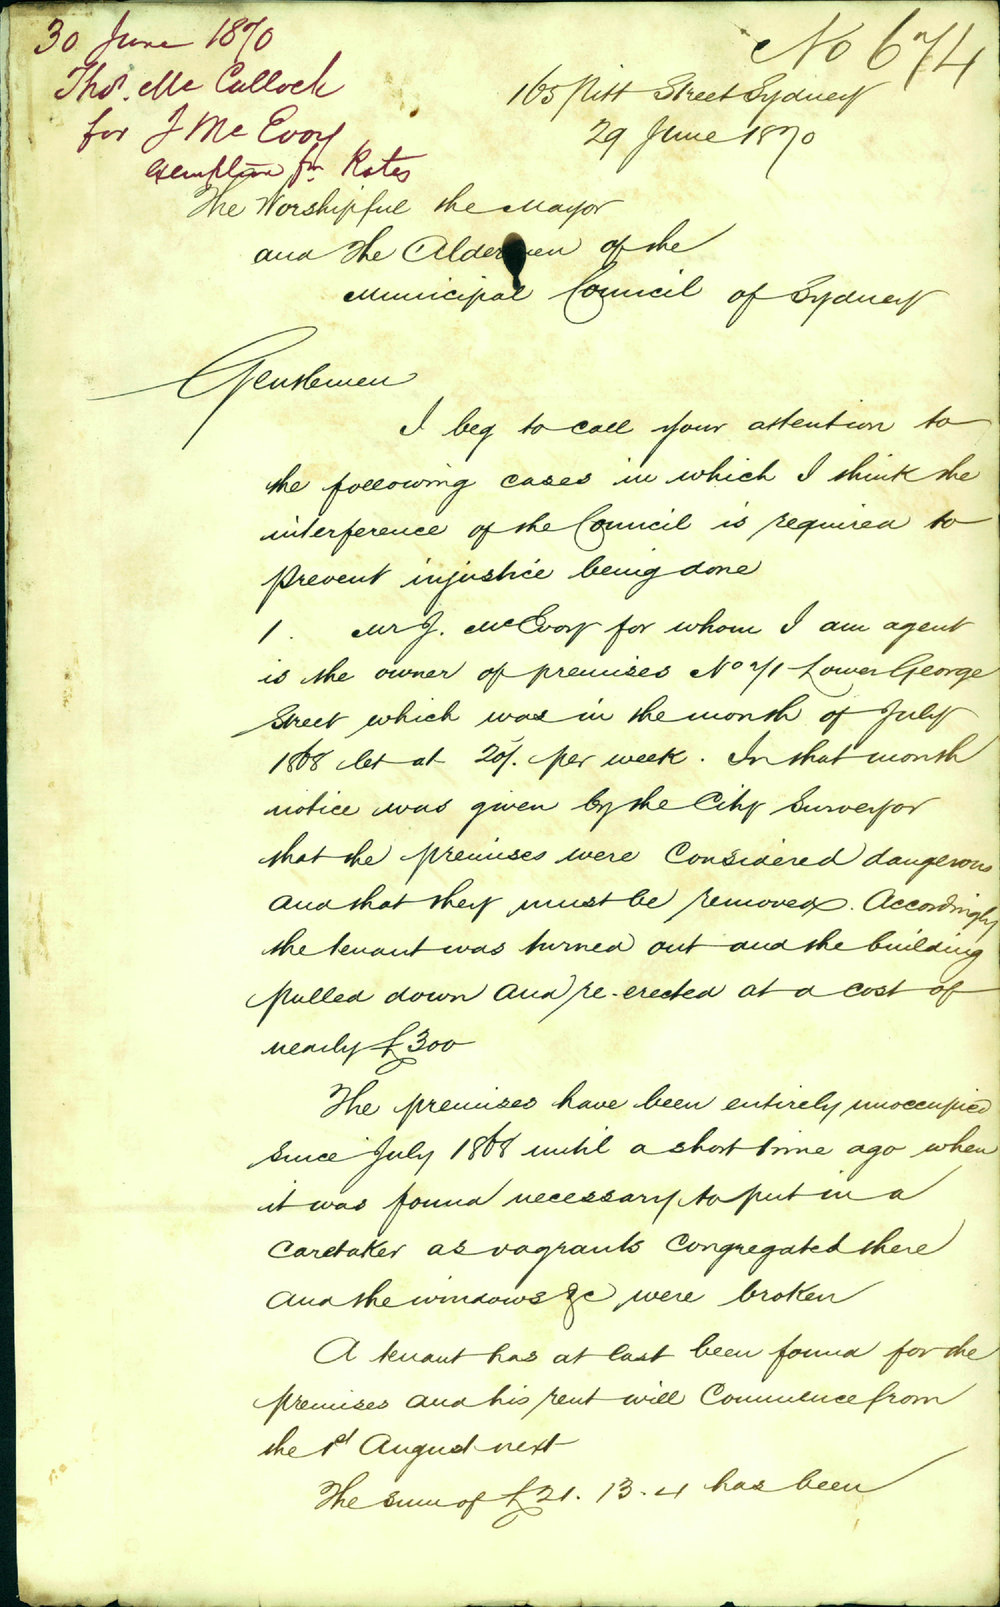 30 June 1870
Thos. Mc Culloch
for J Mc Evoy
exemption fm Rates
No 674
165 Pitt Street Sydney
29 June 1870
The Worshipful the Mayor
and the Aldermen of the
Municipal Council of Sydney
Gentlemen
I beg to call your attention to
the following cases in which I think the
interference of the Council is required to
prevent injustice being done
1. Mr J. McEvoy for whom I am agent
is the owner of premises No 71 Lower George
Street which was in the month of July
1868 let at 25/. per week. In that month
notice was given by the City Surveyor
that the premises were considered dangerous
and that they must be removed. Accordingly
the tenant was turned out and the building
pulled down and re-erected at a cost of
nearly £300
The premises have been entirely unoccupied
since July 1868 until a short time ago when
it was found necessary to put in a
caretaker as vagrants congregated there
and the windows &c were broken
A tenant has at last been found for the
premises and his rent will commence from
the 1st August next
The sum of £21.13.4 has been